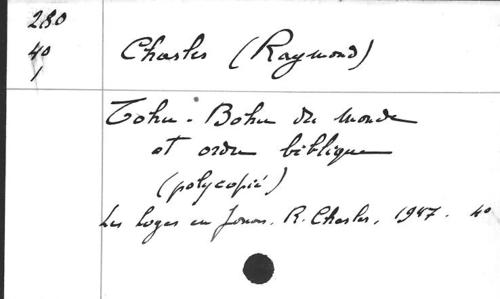 280
40
1
Charles (Raymond)
Tohu-Bohu du monde
et ordre biblique
(polycopié)
Les Loges en Josas. R. Charles, 1947. 40